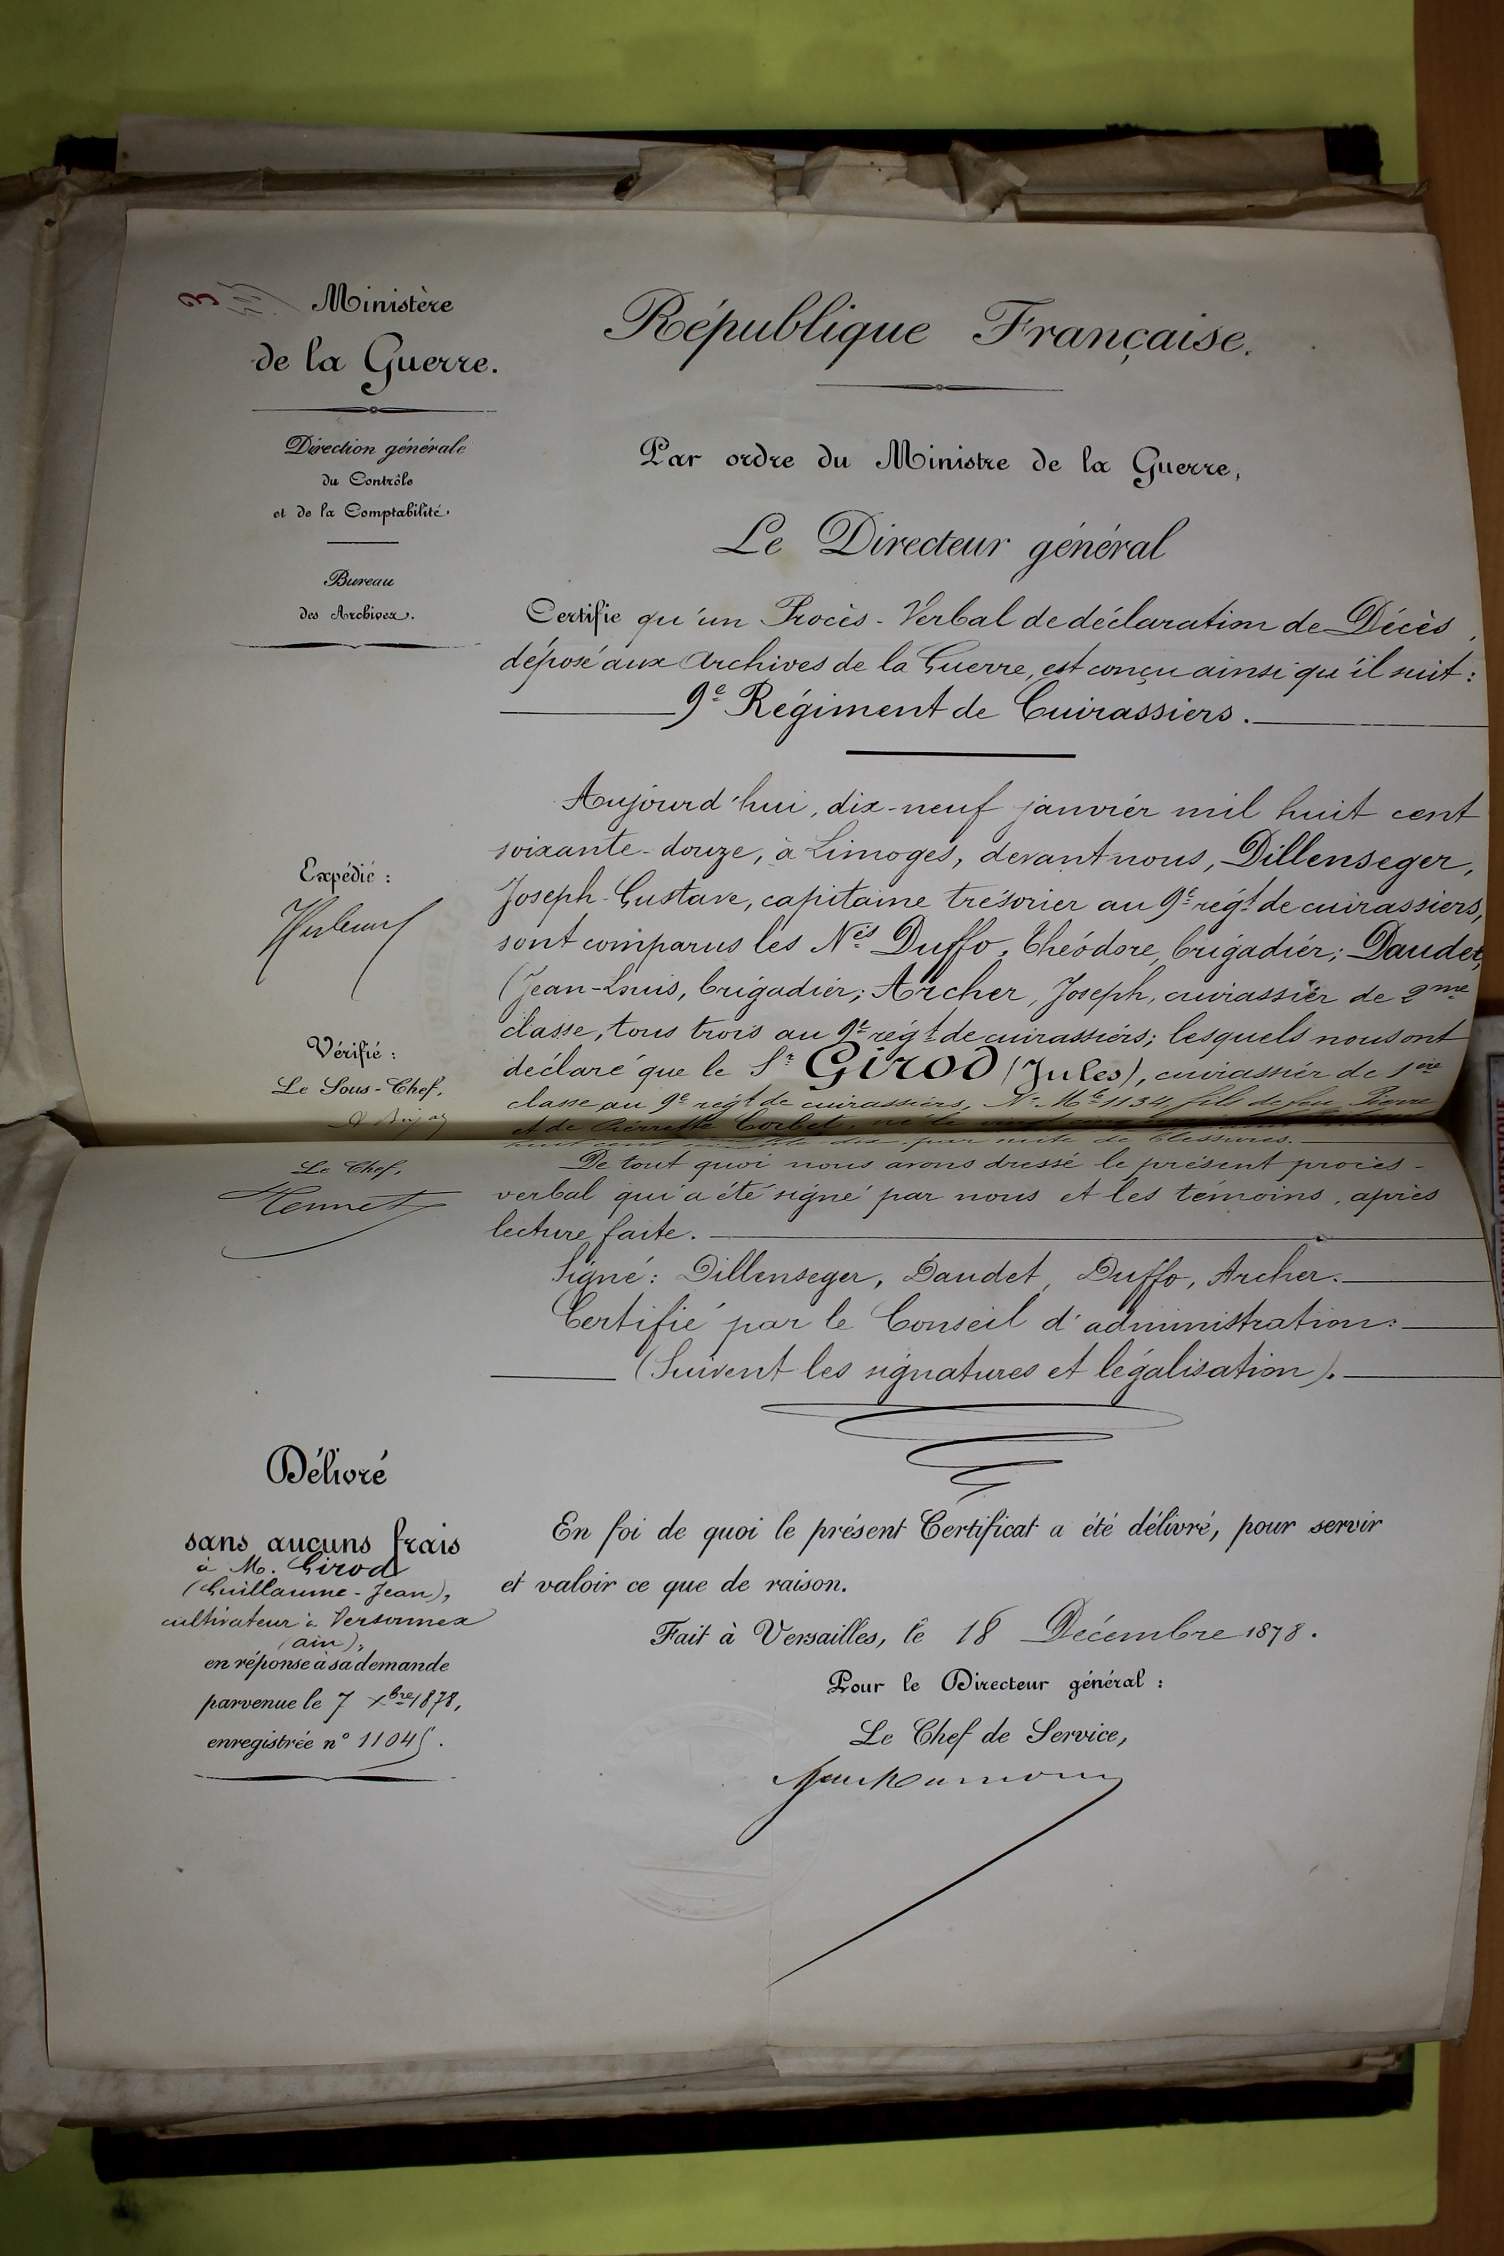 3
Ministère
de la Guerre.
Direction générale
du Contrôle
et de la Comptabilité.
Bureau
des Archives.
République Française.
Par ordre du Ministre de la Guerre,
Le Directeur général
Certifie qu'un Procès-Verbal de déclaration de Décès,
déposé aux Archives de la Guerre, est conçu ainsi qu'il suit:
9e Régiment de Cuirassiers.
Aujourd'hui, dix-neuf janvier mil huit cent
soixante-douze, à Limoges, devant nous, Dillenseger,
Joseph-Gustave, capitaine trésorier au 9e régt de cuirassiers,
sont comparus les Nés Duffo, Théodore, brigadier; Daudet,
(Jean-Louis, brigadier; Archer, Joseph, cuirassier de 2me
classe, tous trois au 9e régt de cuirassiers; lesquels nous ont
déclaré que le Sr Girod (Jules), cuirassier de 1ère
classe au 9e régt de cuirassiers, No Mle 1134, fils de feu Pierre
et de Pierrette Corbet, né le vingt
huit cent par suite de blessures.
De tout quoi nous avons dressé le présent procès-
verbal qui a été signé par nous et les témoins, après
lecture faite.
Signé: Dillenseger, Daudet, Duffo, Archer.
Certifié par le Conseil d'administration:
(Suivent les signatures et légalisation).
Expédié:
Vérifié:
Le Sous-Chef,
Le Chef,
Hennet
Délivré
sans aucuns frais
à M. Girod
(Guillaume-Jean),
cultivateur à Versonnex
(ain),
en réponse à sa demande
parvenue le 7 xbre 1878,
enregistrée n° 11045.
En foi de quoi le présent Certificat a été délivré, pour servir
et valoir ce que de raison.
Fait à Versailles, le 18 Décembre 1878.
Pour le Directeur général:
Le Chef de Service,